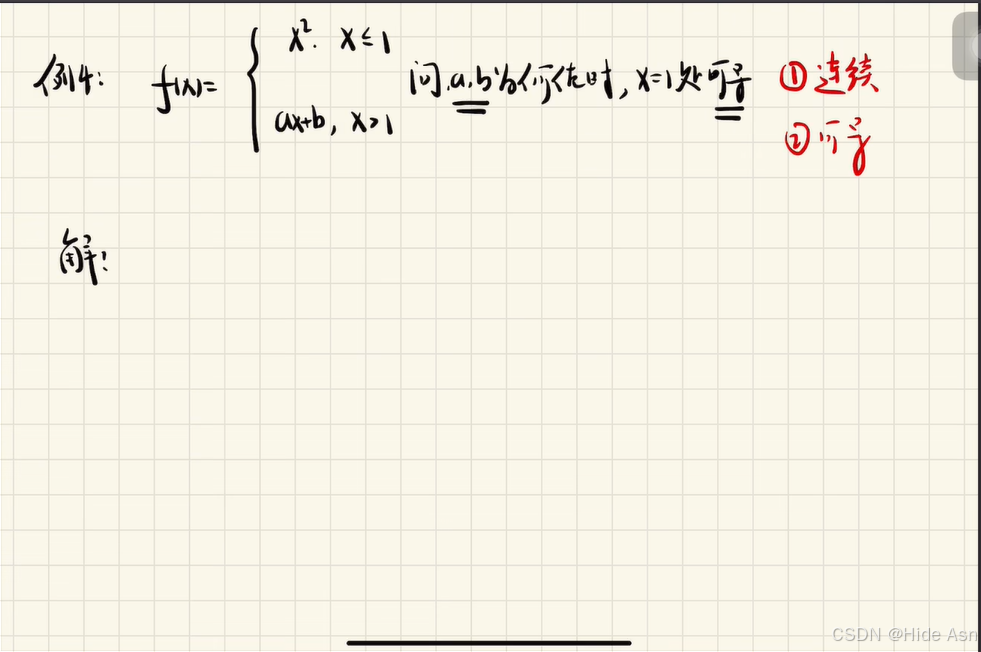 例4: f(x)= { x². x≤1
ax+b, x>1
问.a.b为何值时,x=1处可导
①连续
②可导
解:
CSDN @Hide Asn